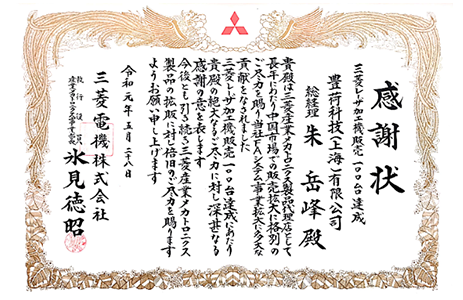 感謝状
三菱レーザ加工機販売一〇〇台達成
豊荷科技(上海)有限公司
総経理 朱岳峰殿
貴殿は三菱産業メカトロニクス製品代理店として
長年にわたり中国市場での販売拡大に格別の
ご尽力を賜り当社FAシステム事業拡大に多大な
貢献をなされました
三菱レーザ加工機販売一〇〇台達成にあたり
貴殿の絶大なるご尽力に対し深甚なる
感謝の意を表します
今後とも引き続き三菱産業メカトロニクス
製品の拡販に対し倍旧のご尽力を賜ります
ようお願い申し上げます
令和元年五月二十八日
三菱電機株式会社
執行役員
産業メカトロニクス事業部長
氷見徳昭